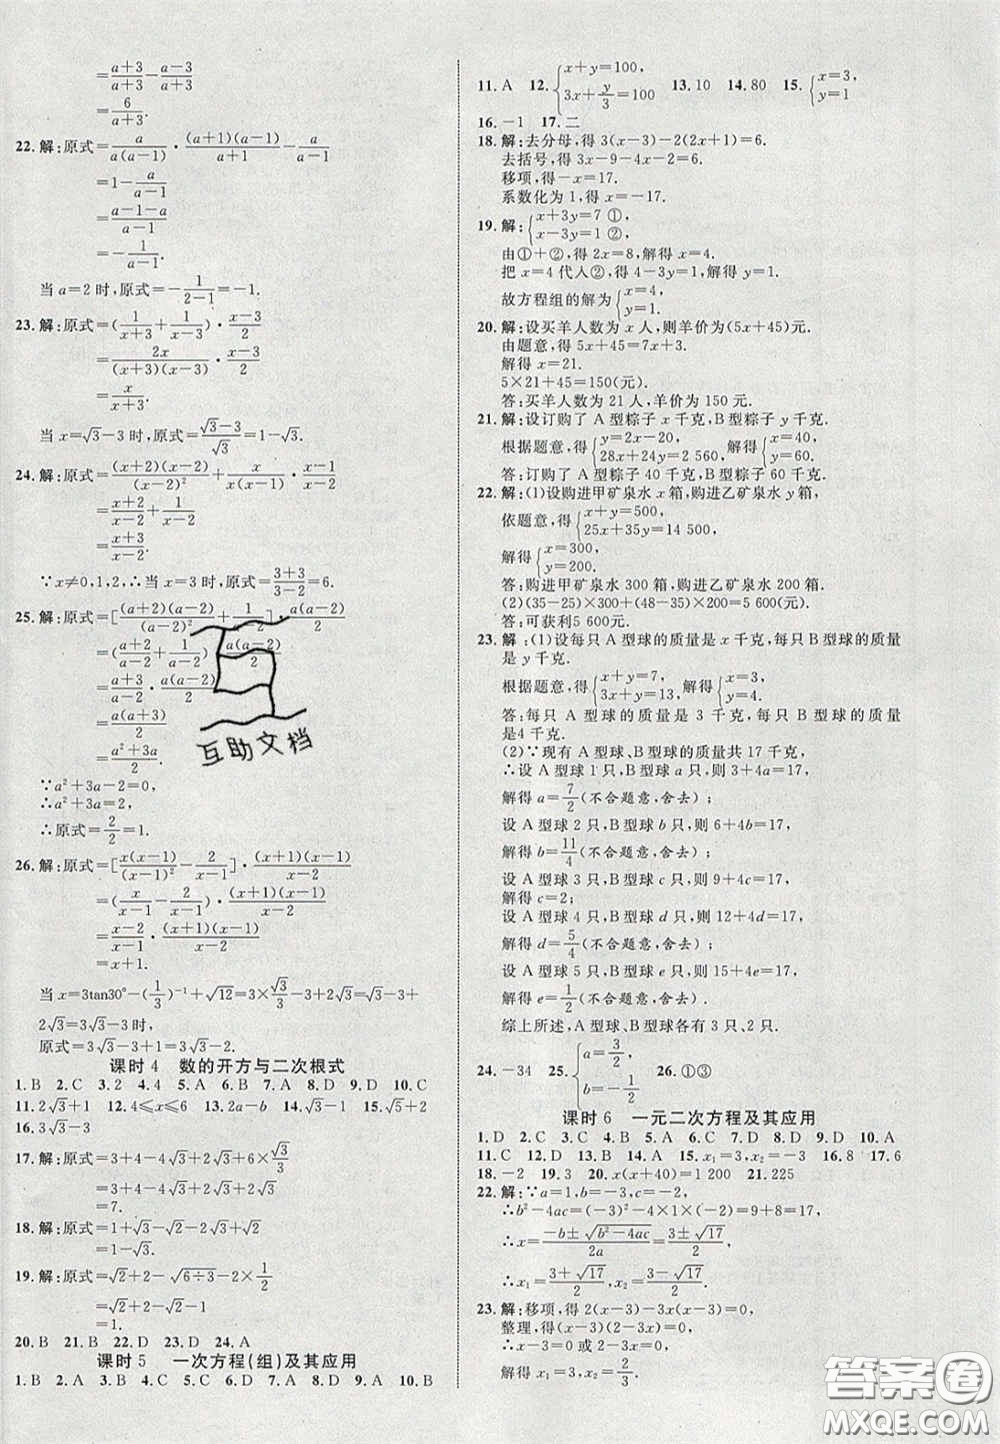 =\frac{a+3}{a+3}-\frac{a-3}{a+3}
=\frac{6}{a+3}.
22.解:原式=\frac{a}{a(a-1)}·\frac{(a+1)(a-1)}{a+1}-\frac{a}{a-1}
=1-\frac{a}{a-1}
=\frac{a-1-a}{a-1}
=-\frac{1}{a-1}.
当a=2时,原式=-\frac{1}{2-1}=-1.
23.解:原式=(\frac{1}{x+3}+\frac{1}{x-3})·\frac{x-3}{2}
=\frac{2x}{(x+3)(x-3)}·\frac{x-3}{2}
=\frac{x}{x+3}.
当x=√3-3时,原式=\frac{√3-3}{√3}=1-√3.
24.解:原式=\frac{(x+2)(x-2)}{(x-2)²}+\frac{x}{x(x-1)}·\frac{x-1}{x-2}
=\frac{x+2}{x-2}+\frac{1}{x-2}
=\frac{x+3}{x-2}.
∵x≠0,1,2,∴当x=3时,原式=\frac{3+3}{3-2}=6.
25.解:原式=[\frac{(a+2)(a-2)}{(a-2)²}+\frac{1}{a-2}]·\frac{a(a-2)}{2}
=(\frac{a+2}{a-2}+\frac{1}{a-2})·\frac{a(a-2)}{2}
=\frac{a+3}{a-2}·\frac{a(a-2)}{2}
=\frac{a(a+3)}{2}
=\frac{a²+3a}{2}.
∵a²+3a-2=0,
∴a²+3a=2,
∴原式=\frac{2}{2}=1.
26.解:原式=[\frac{x(x-1)}{(x-1)²}-\frac{2}{x-1}]·\frac{(x+1)(x-1)}{x-2}
=(\frac{x}{x-1}-\frac{2}{x-1})·\frac{(x+1)(x-1)}{x-2}
=\frac{x-2}{x-1}·\frac{(x+1)(x-1)}{x-2}
=x+1.
当x=3tan30°-(\frac{1}{3})⁻¹+√12=3×\frac{√3}{3}-3+
2√3=3√3-3时,
原式=3√3-3+1=3√3-2.
课时4 数的开方与二次根式
1.B 2.C 3.2 4.4 5.A 6.B 7.B 8.D 9.D 10.C
11.2√3+1 12.4≤x≤6 13.2a-b 14.√3 15.√5+2
16.3√3-3
17.解:原式=3+4-4√3+12×\frac{√3}{3}
=3+4-4√3+4√3
=7.
18.解:原式=1+√3-√2-2√3+√2
=1-√3.
19.解:原式=√2+2-√(6÷3)-2×\frac{1}{2}
=√2+2-√2-1
=1.
20.B 21.B 22.D 23.D 24.A
课时5 一次方程(组)及其应用
1.B 2.A 3.C 4.C 5.B 6.D 7.D 8.A 9.A 10.B
11.A 12.{x+y=100, 3x+\frac{y}{3}=100 13.10 14.80 15.{x=3, y=1
16.-1 17.二
18.解:去分母,得3(x-3)-2(2x+1)=6.
去括号,得3x-9-4x-2=6.
移项,得-x=17.
系数化为1,得x=-17.
19.解:{x+3y=7 ①, x-3y=1 ②,
由①+②,得2x=8,解得x=4.
把x=4代人②,得4-3y=1,解得y=1.
故方程组的解为{x=4, y=1.
20.解:设买羊人数为x人,则羊价为(5x+45)元.
由题意,得5x+45=7x+3.
解得x=21.
5×21+45=150(元).
答:买羊人数为21人,羊价为150元.
21.解:设订购了A型粽子x千克,B型粽子y千克.
根据题意,得{y=2x-20, 28x+24y=2 560,解得{x=40, y=60.
答:订购了A型粽子40千克,B型粽子60千克.
22.解:(1)设购进甲矿泉水x箱,购进乙矿泉水y箱,
依题意,得{x+y=500, 25x+35y=14 500,
解得{x=300, y=200.
答:购进甲矿泉水300箱,购进乙矿泉水200箱.
(2)(35-25)×300+(48-35)×200=5 600(元).
答:可获利5 600元.
23.解:(1)设每只A型球的质量是x千克,每只B型球的质量
是y千克.
根据题意,得{x+y=7, 3x+y=13,解得{x=3, y=4.
答:每只A型球的质量是3千克,每只B型球的质量
是4千克.
(2)∵现有A型球、B型球的质量共17千克,
∴设A型球1只,B型球a只,则3+4a=17,
解得a=\frac{7}{2}(不合题意,舍去);
设A型球2只,B型球b只,则6+4b=17,
解得b=\frac{11}{4}(不合题意,舍去);
设A型球3只,B型球c只,则9+4c=17,
解得c=2;
设A型球4只,B型球d只,则12+4d=17,
解得d=\frac{5}{4}(不合题意,舍去);
设A型球5只,B型球e只,则15+4e=17,
解得e=\frac{1}{2}(不合题意,舍去);
综上所述,A型球、B型球各有3只、2只.
24.-34 25.{a=\frac{3}{2}, b=-\frac{1}{2} 26.①③
课时6 一元二次方程及其应用
1.D 2.C 3.B 4.B 5.A 6.C 7.D 8.C 9.D 10.A
11.C 12.D 13.B 14.A 15.x₁=3,x₂=-1 16.8 17.6
18.-2 19.3 20.x(x+40)=1 200 21.225
22.解:∵a=1,b=-3,c=-2;
∴b²-4ac=(-3)²-4×1×(-2)=9+8=17,
∴x=\frac{-b±√(b²-4ac)}{2a}=\frac{3±√17}{2},
∴x₁=\frac{3+√17}{2},x₂=\frac{3-√17}{2}.
23.解:移项,得2(x-3)-3x(x-3)=0,
整理,得(x-3)(2-3x)=0,
∴x-3=0或2-3x=0,
解得x₁=3,x₂=\frac{2}{3}.
互助文档
答案圈
MXQE.COM